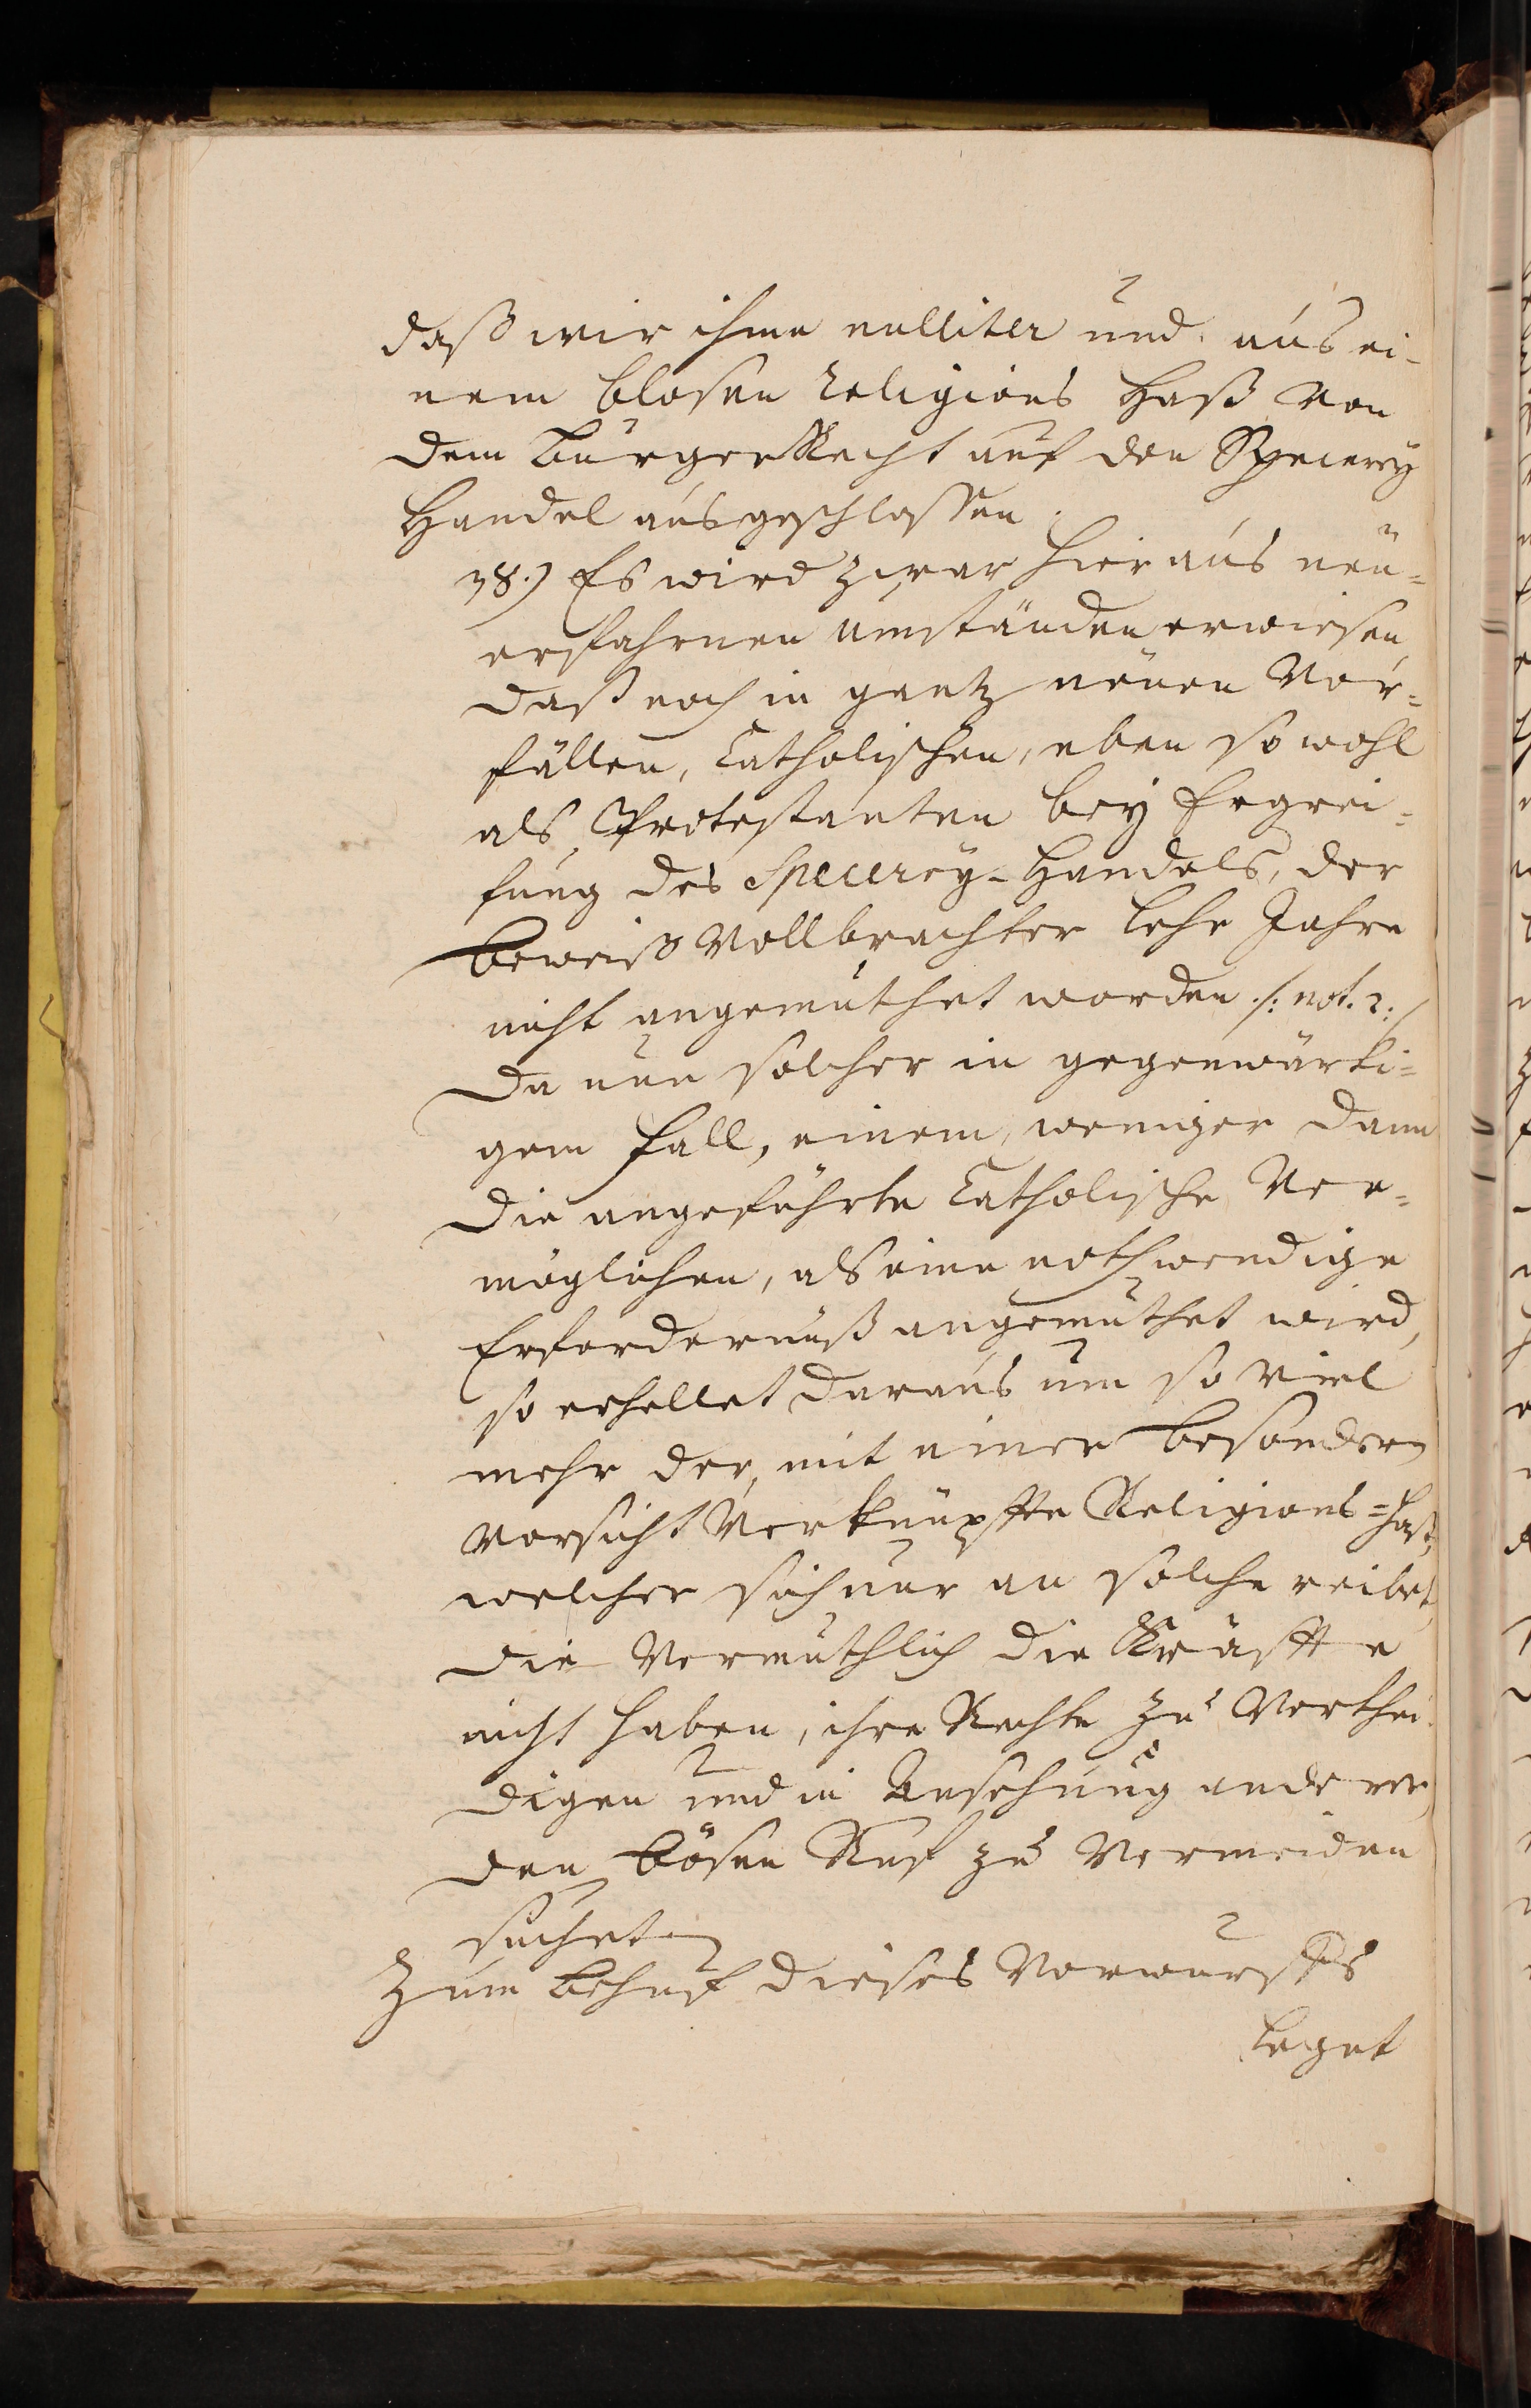 daß wir ihme nulliter und aus ei-
nem blosen Religions Haß von
dem BürgerRecht auf den Specerey
Handel ausgeschlossen.
38.) Es wird zwar hier aus neu=
erfahrnen umständen erwiesen,
daß noch in gantz neuen Vor=
fällen, Catholischen, eben so wohl
als Protestanten bey Ergrei=
fung des Specerey-Handels, der
Beweiß Vollbrachter Lehr Jahre
nicht angemuthet worden /: not. 2:/
Da nun solcher in gegenwärti=
gem Fall, einem, weniger dann
die angeführte Catholische Ver=
möglichen, als eine nothwendige
Erfordernuß angemuthet wird,
so erhellet daraus um so viel
mehr der, mit einer besondern
Vorsicht Verknüpfte Religions=Haß,
welcher sich nur an solche reibet,
die Vermuthlich die Kräffte
nicht haben, ihre Rechte zu Verthei-
digen und in Ansehung anderer,
den bösen Ruf zu Vermeiden
suchet.
Zum Behuf dieses Vorwurffs
leget